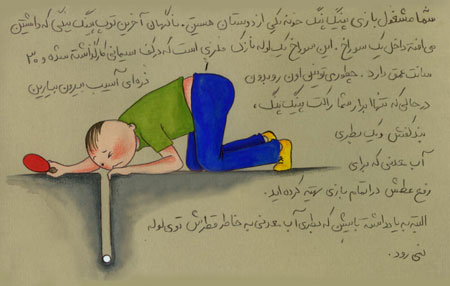 شما مشغول بازی پینگ پنگ خونه یکی از دوستان هستین. ناگهان آخرین توپ پینگ پنگی که داشتین
می افته داخل یک سوراخ. این سوراخ یک لوله نازک فلزی است که در کف سیمانی کار گذاشته شده و ۳۰
سانت عمق دارد. چطوری اون رو بدون ذره ای آسیب بیرون میارین
در حالی که تنها ابزار شما راکت پینگ پنگ،
بند کفش و یک بطری
آب معدنی که برای
رفع عطش در اتمام بازی تهیه کرده اید.
البته به یاد داشته باشین که بطری آب معدنی به خاطر قطرش توی لوله
نمی رود.